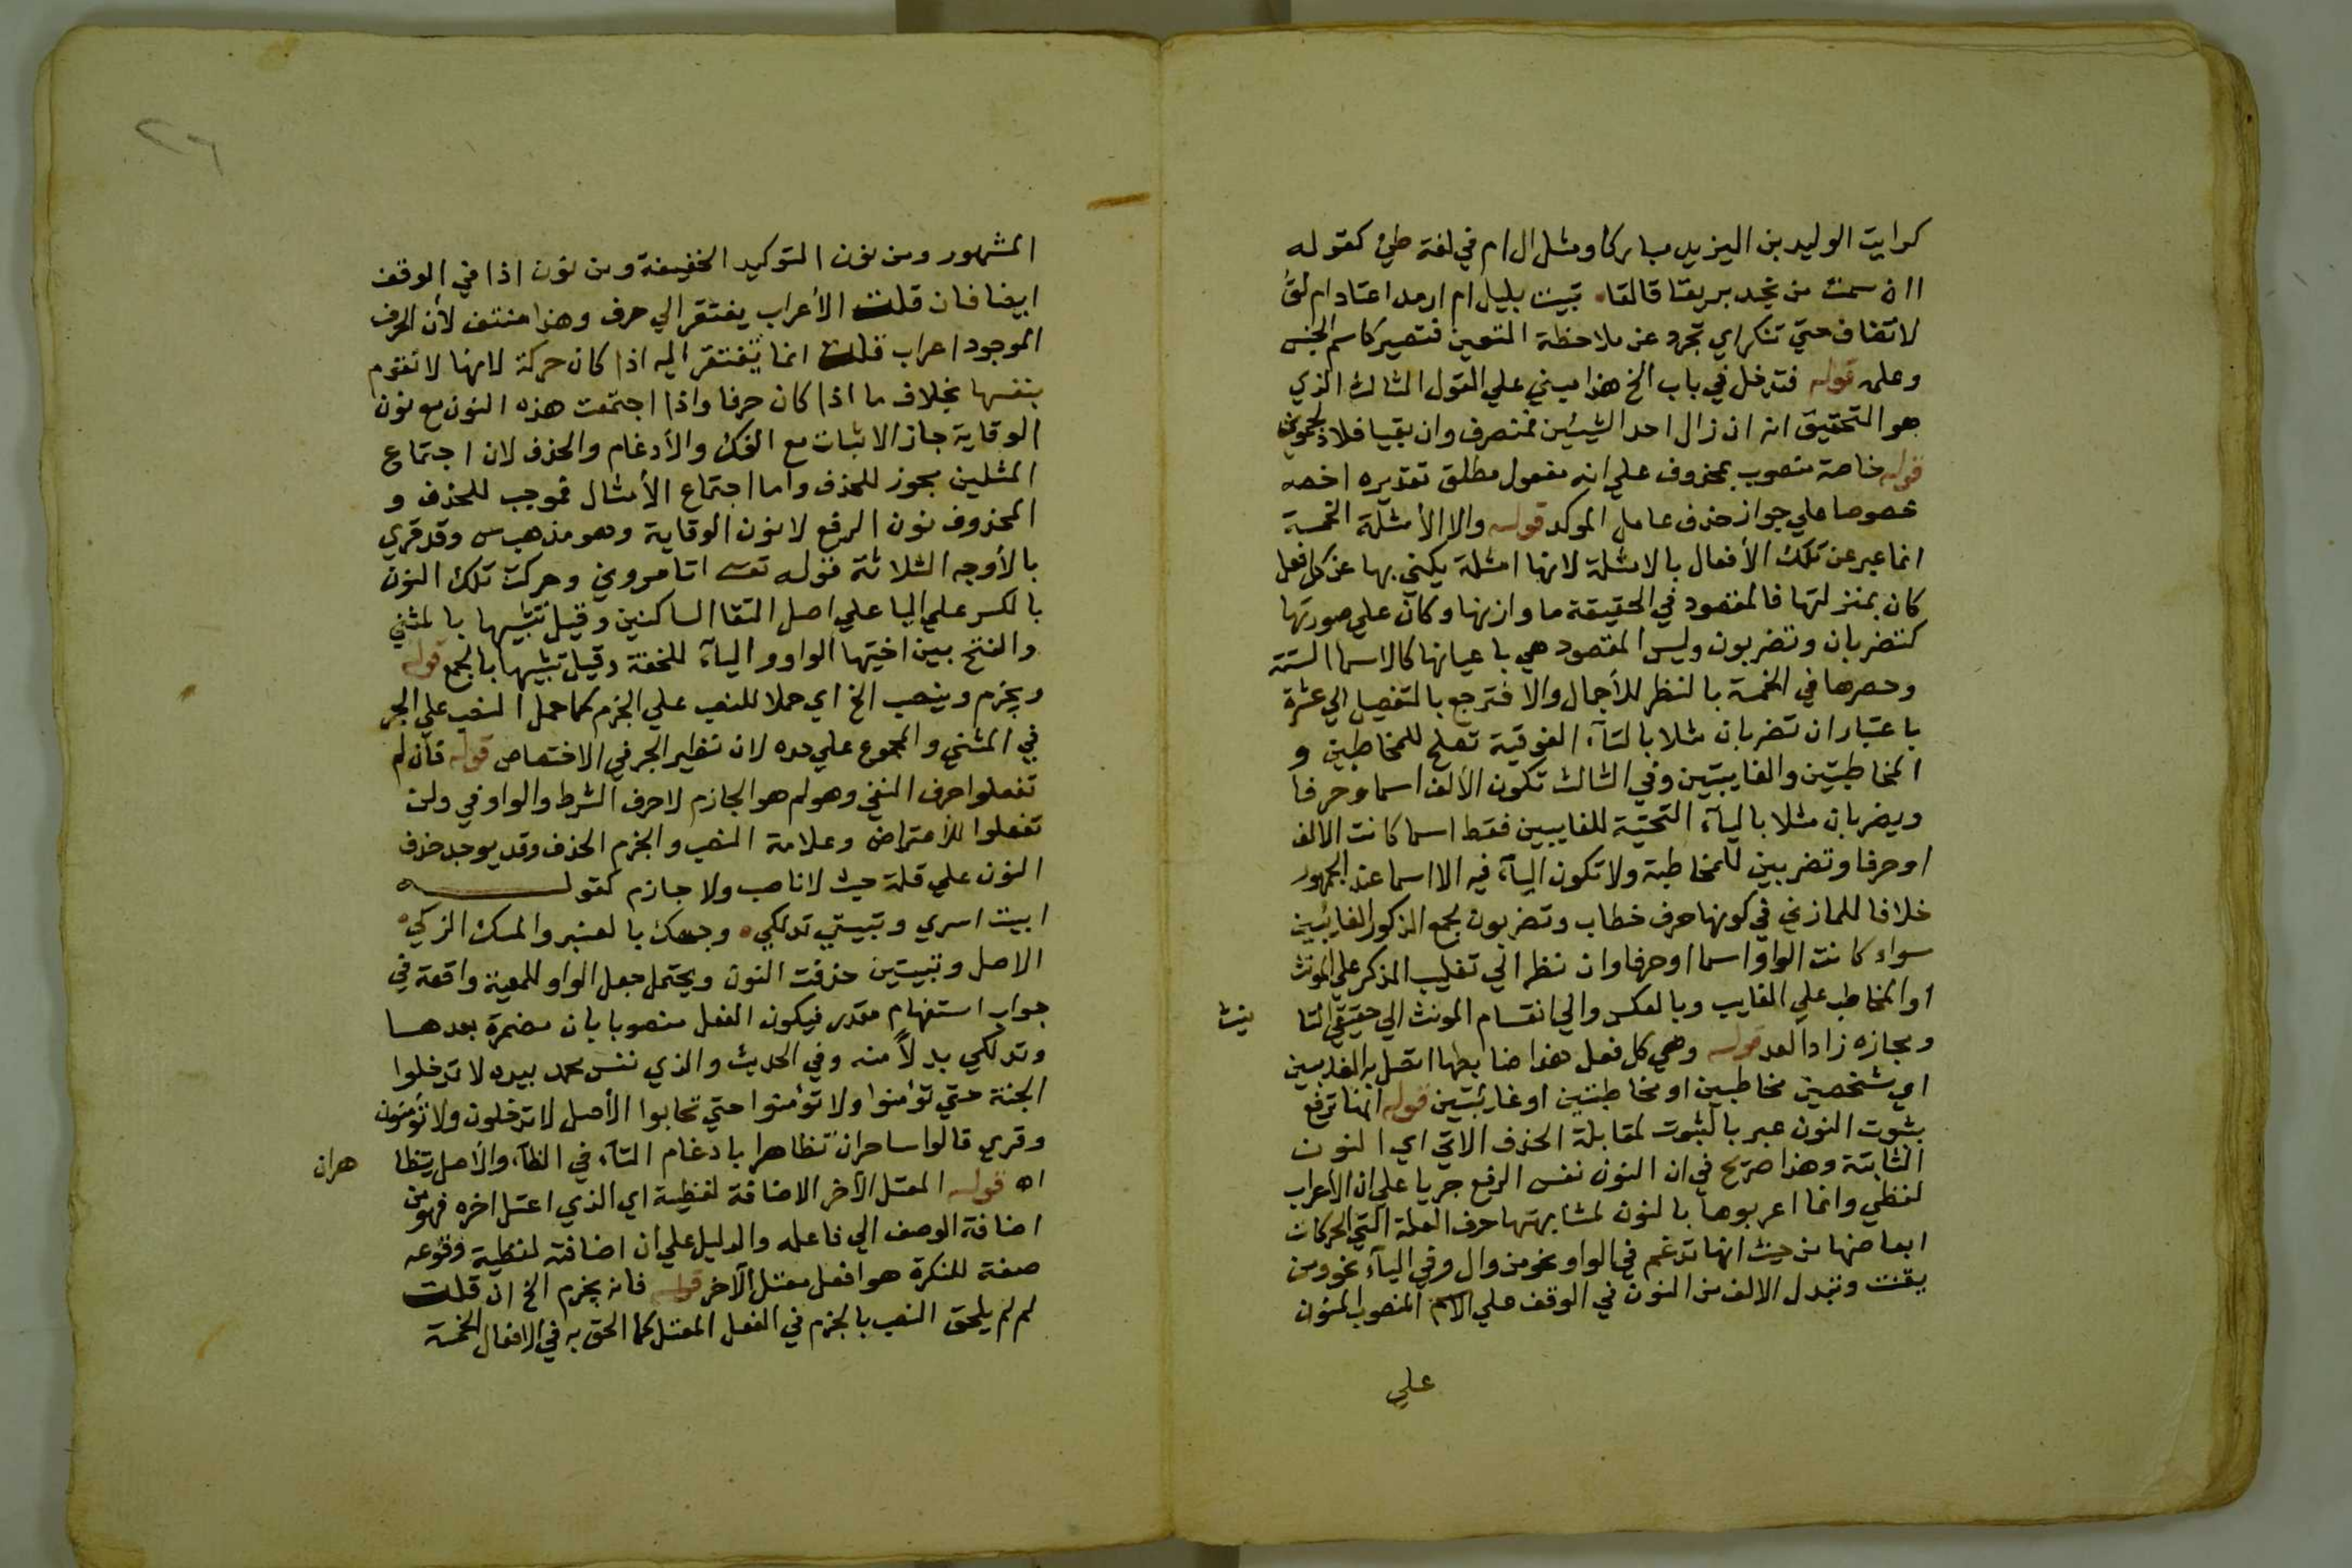 كرايت الوليد بن اليزيد مباركا ومثل ال ام في لغة طئ كقوله
اان سمت من نجد بريقا تالقا تبيت بليل ام ارمد اعتاد ام لق
لا تضاف حتي تنكر اي تجرد عن ملاحظة التعين فتصير كاسم الجنس
وعلم قوله فتدخل في باب الخ هذا مبني علي القول الثالث الذي
هو التحقيق انه ان زال احد الشيئين فمنصرف وان بقيا فلا
قوله خاصة منصوب بمحذوف علي انه مفعول مطلق تقديره اخصه
خصوصا علي جواز حذف عامل الموكد قوله والا الأمثلة الخمسة
انما عبر عن تلك الأفعال بالامثلة لانها امثلة يكني بها عن كل فعل
كان بمنزلتها فالمقصود في الحقيقة ما وازنها وكان علي صورتها
كتضربان وتضربون وليس المقصود هي باعيانها كالاسما الستة
وحصرها في الخمسة بالنظر للأجمال والا فترجع بالتفصيل الي عشرة
باعتبار ان تضربان مثلا بالتاء الفوقية تصلح للمخاطبين و
المخاطبتين والغايبتين وفي الثالث تكون الألف اسما وحرفا
ويضربان مثلا بالياء التحتية للغايبين فقط اسما كانت الالف
اوحرفا وتضربين للمخاطبة ولا تكون الياء فيه الا اسما عند الجمهور
خلافا للمازني في كونها حرف خطاب وتضربون لجمع الذكور الغائبين
سواء كانت الواو اسما اوحرفا وان نظر الي تغليب المذكر علي المونث
اوالمخاطب علي الغايب وبالعكس والي انقسام المونث الي حقيقي التا نيث
ومجازه زاد العد قوله وهي كل فعل هذا ضابطها اتصل به الف اثنين
اي شخصين مخاطبين او مخاطبتين اوغائبتين قوله انها ترفع
بثبوت النون عبر بالثبوت لمقابلة الحذف الاتي اي النون
الثابتة وهذا صريح في ان النون نفس الرفع جريا علي ان الاعراب
لفظي وانما اعربوها بالنون لمشابهتها حرف العلة التي الحركات
ابعاضها من حيث انها تدغم في الواو نحو من وال وفي الياء نحو ومن
يقنت وتبدل الالف من النون في الوقف علي الاسم المنصوب المنون
علي
المشهور ومن نون التوكيد الخفيفة ومن نون اذا في الوقف
ايضا فان قلت الأعراب يفتقر الي حرف وهذا منتف لأن الحرف
الموجود اعراب قلت انما يفتقر اليه اذا كان حركة لانها لا تقوم
بنفسها بخلاف ما اذا كان حرفا واذا اجتمعت هذه النون مع نون
الوقاية جاز الاثبات مع الفك والأدغام والحذف لان اجتماع
المثلين مجوز للحذف واما اجتماع الأمثال فموجب للحذف و
المحذوف نون الرفع لا نون الوقاية وهو مذهب س وقد قري
بالأوجه الثلاثة قوله تعـ اتامروني وحركت تلك النون
بالكسر علي اليا علي اصل التقا الساكنين وقيل تشبيها بالمثني
والفتح بين اختيها الواو والياء للخفة وقيل تشبيها بالجمع قوله
ويجزم وينصب الخ اي حملا للنصب علي الجزم كما حمل النصب علي الجر
في المثني والمجموع علي حده لان نظير الجر في الاختصاص قوله فأن لم
تفعلوا حرف النفي وهو لم هو الجازم لا حرف الشرط والواو في ولن
تفعلوا للأعتراض وعلامة النصب والجزم الحذف وقد يوجد حذف
النون علي قلة حيث لا ناصب ولا جازم كقوله
ابيت اسري وتبيتي تدلكي وجهك بالعنبر والمسك الزكي
الاصل وتبيتين حذفت النون ويحتمل جعل الواو للمعية واقعة في
جواب استفهام مقدر فيكون الفعل منصوبا بان مضمرة بعدها
وتدلكي بدلاً منه وفي الحديث والذي نفس محمد بيده لا تدخلوا
الجنة حتي تؤمنوا ولا تؤمنوا حتي تحابوا الأصل لا تدخلون ولا تؤمنون
وقري قالوا ساحران تظاهرا بادغام التاء في الظاء والأصل يتظا هران
اه قوله المعتل الآخر الاضافة لفظية اي الذي اعتل اخره فهو من
اضافة الوصف الي فاعله والدليل علي ان اضافته لفظية وقوعه
صفة للنكرة هو افعل معتل الآخر قوله فانه يجزم الخ ان قلت
لم لم يلحق النصب بالجزم في الفعل المعتل كما الحق به في الافعال الخمسة